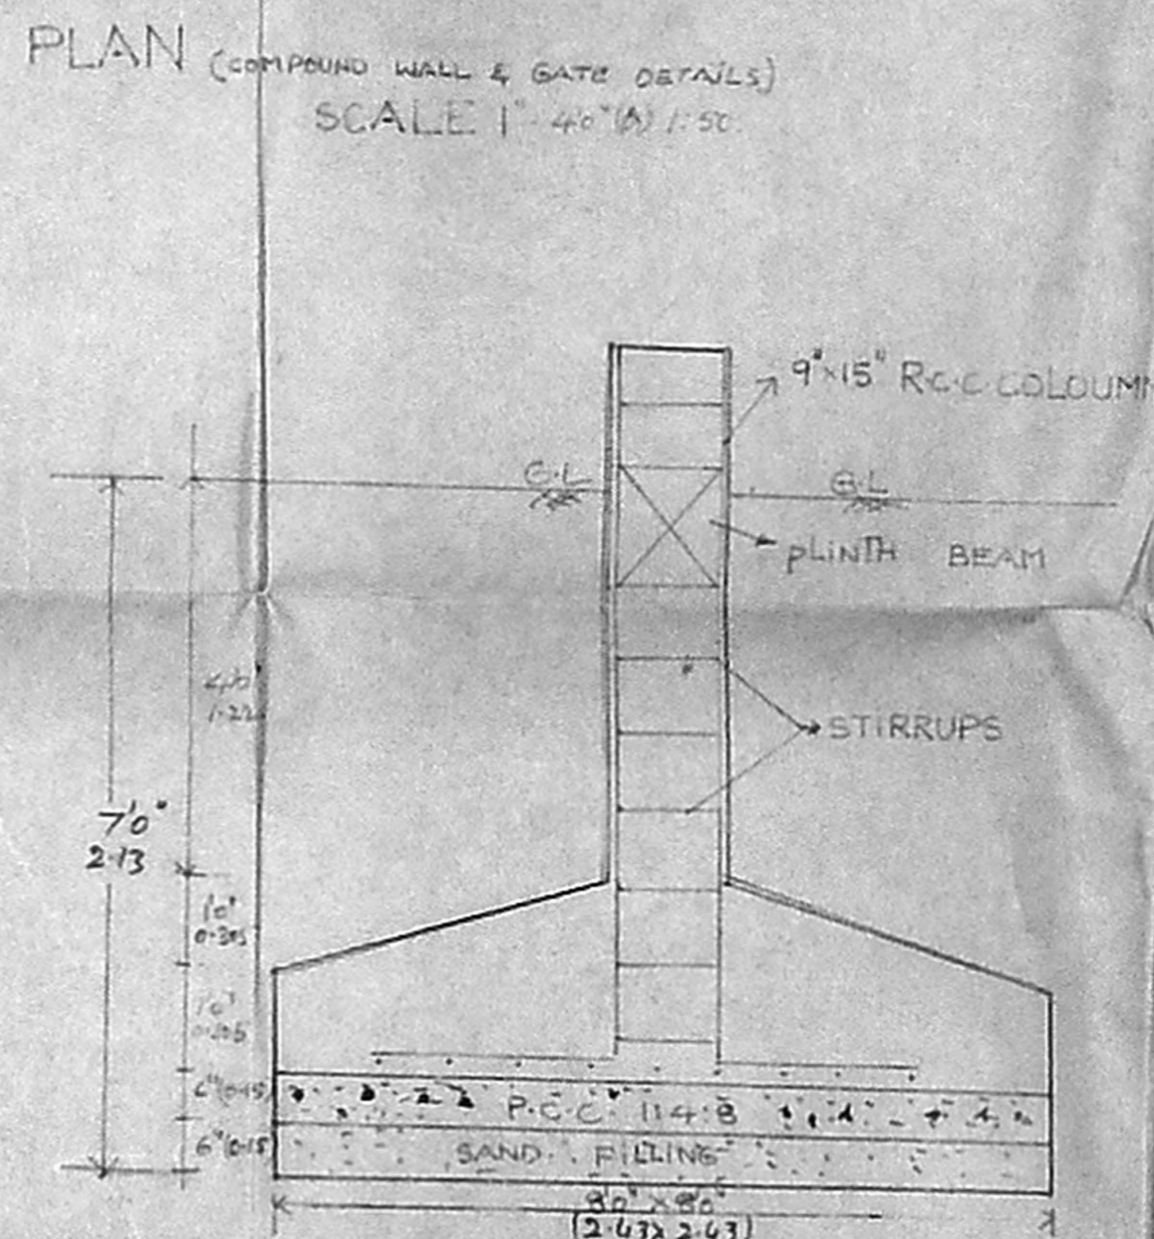 PLAN (COMPOUND WALL & GATE DETAILS)
SCALE 1" 4'0" (A) 1:50
9"x15" R.C.C COLOUMN
G.L
G.L
PLINTH BEAM
4'0"
1.22
STIRRUPS
7'0"
2.13
1'0"
0.305
1'0"
0.305
6"(0.15)
P.C.C. 1:4:8
6"(0.15)
SAND FILLING
8'0" x 8'0"
(2.43x2.43)